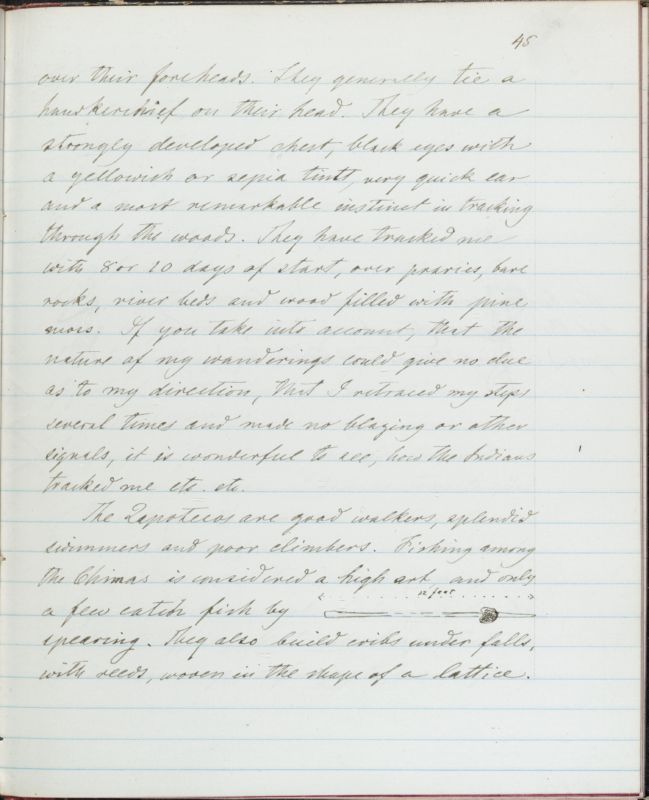 45
over their foreheads. They generally tie a
handkerchief on their head. They have a
strongly developed chest, black eyes with
a yellowish or sepia tint, very quick ear
and a most remarkable instinct in tracking
through the woods. They have tracked me
with 8 or 10 days of start, over praries, bare
rocks, river beds and wood filled with pine
moss. If you take into account, that the
nature of my wanderings could give no clue
as to my direction, that I retraced my steps
several times and made no blazing or other
signals, it is wonderful to see, how the Indians
tracked me etc. etc.
The Zapotecos are good walkers, splendid
swimmers and poor climbers. Fishing among
the Chimas is considered a high art and only
12 feet
a few catch fish by
spearing. They also build cribs under falls,
with reeds, woven in the shape of a lattice.